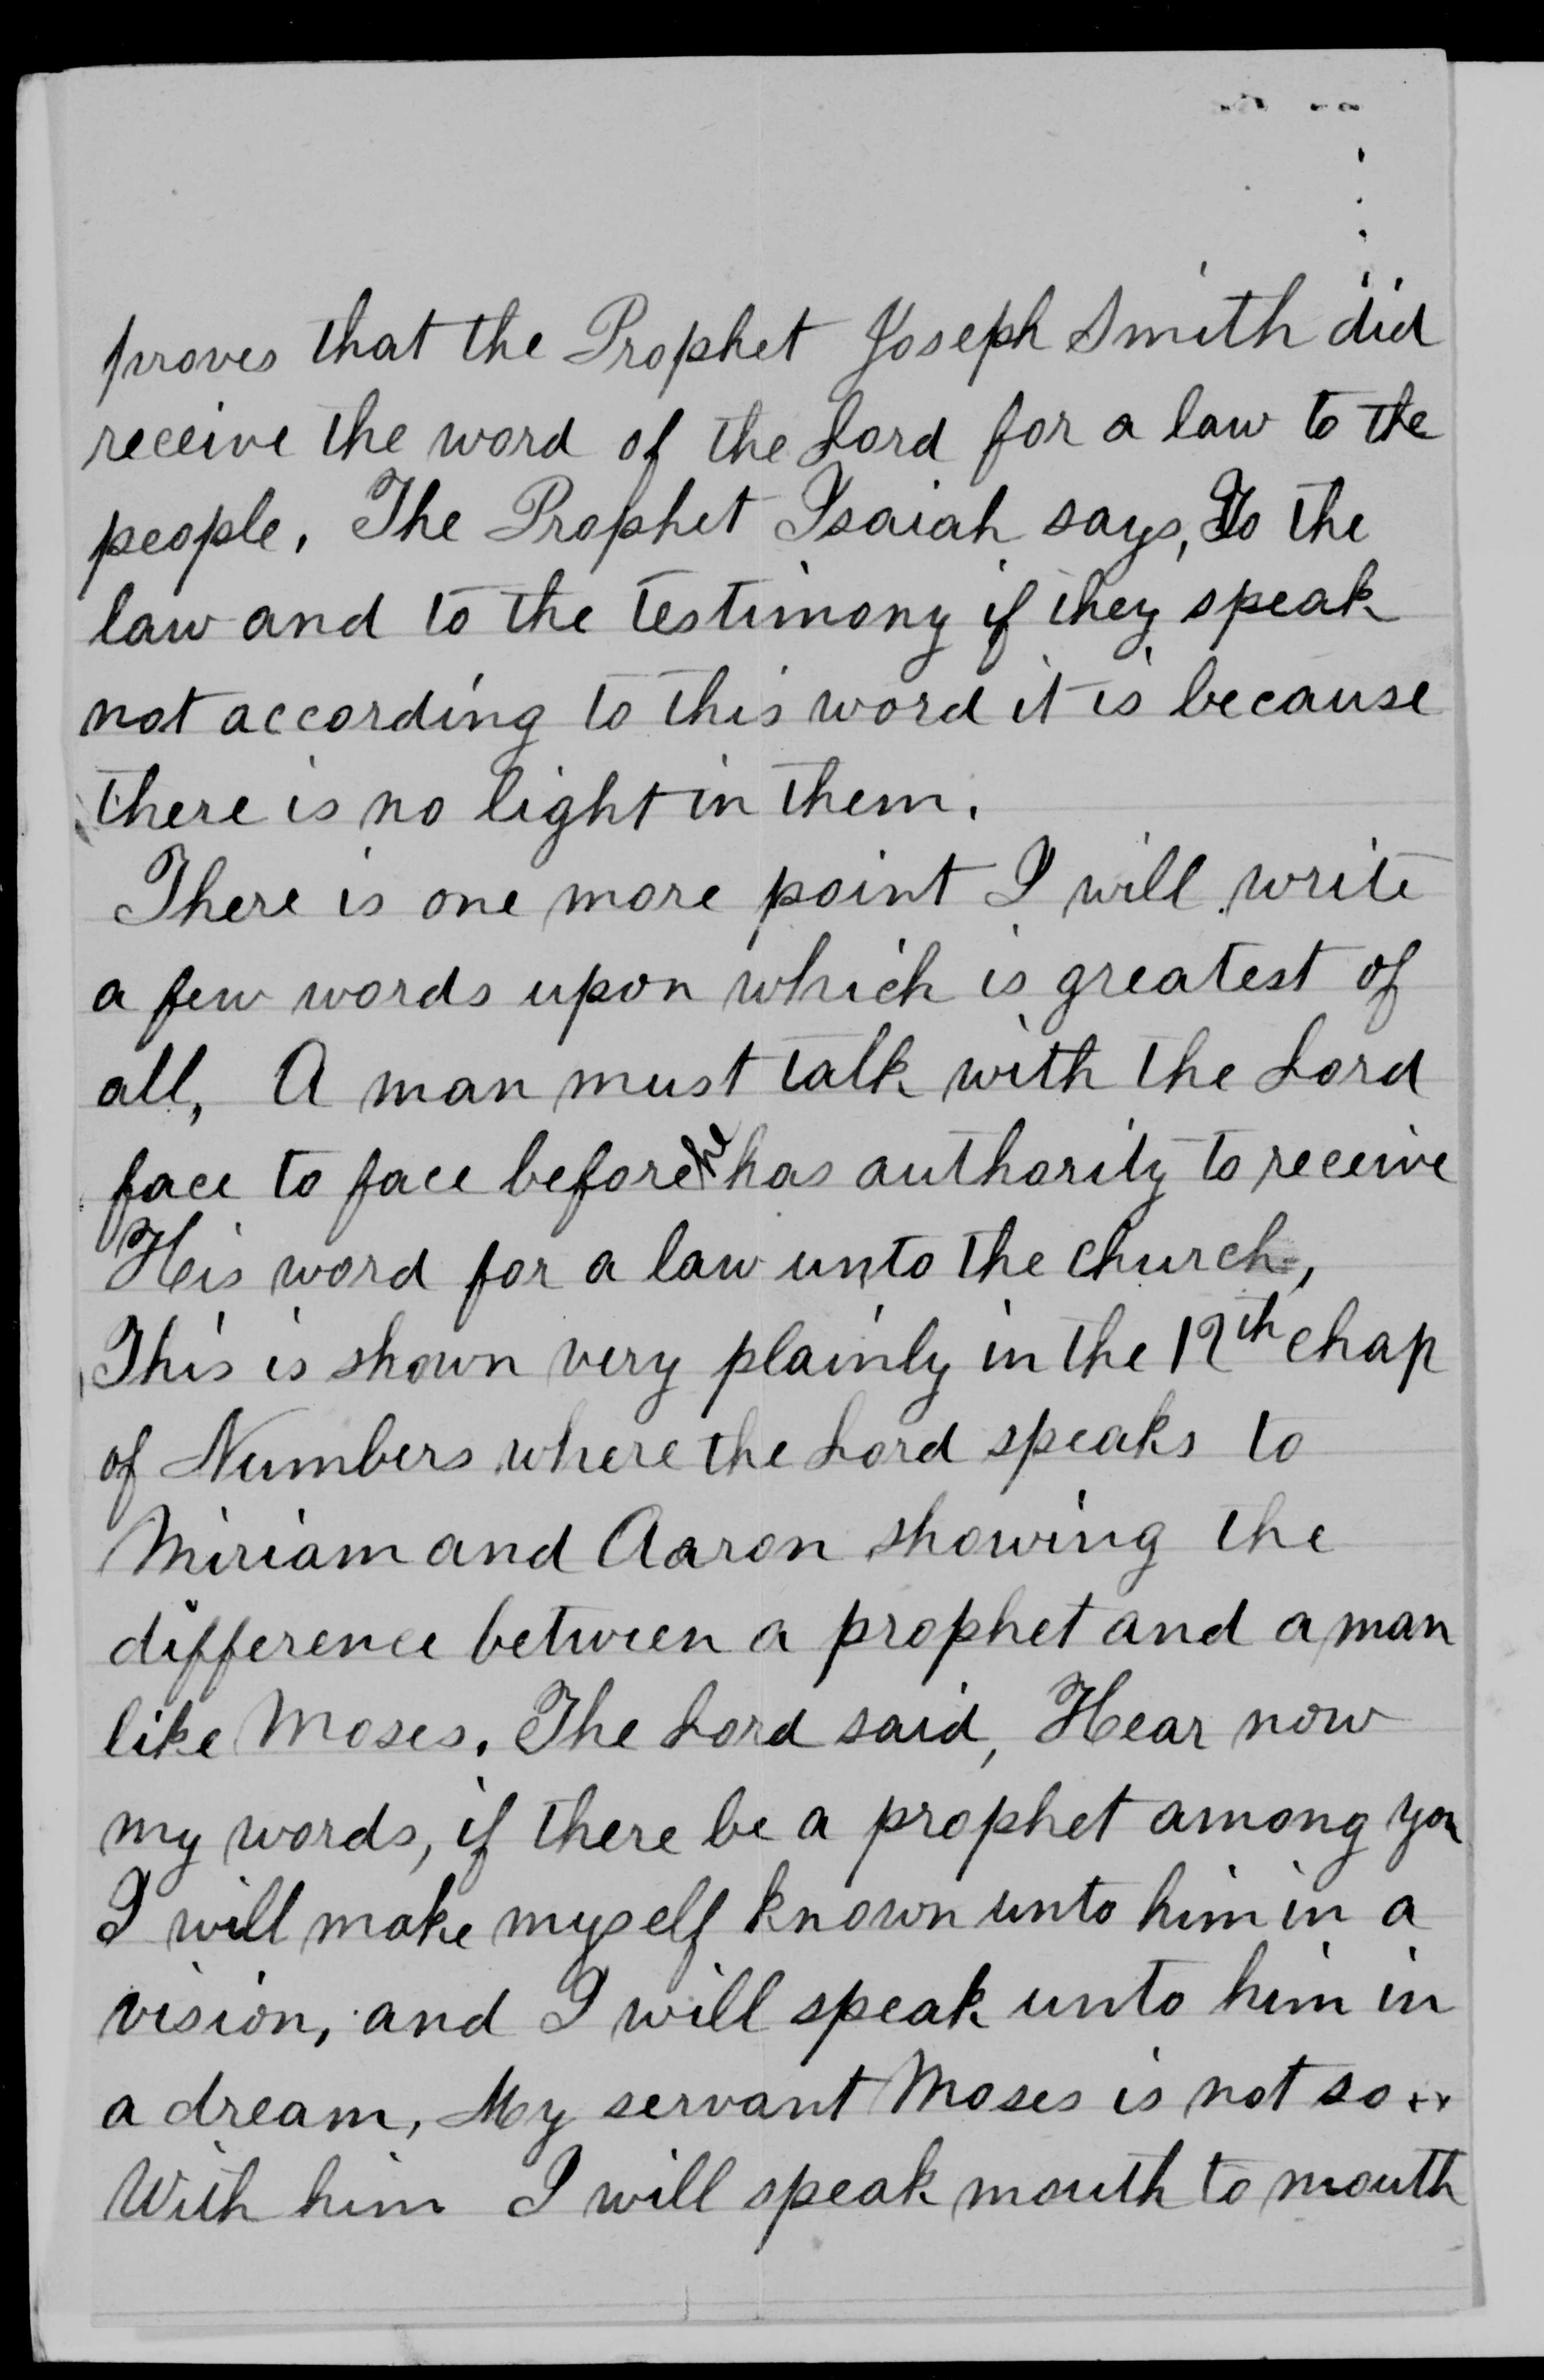 proves that the Prophet Joseph Smith did
receive the word of the Lord for a law to the
people. The Prophet Isaiah says, To the
law and to the testimony if they speak
not according to this word it is because
there is no light in them.
There is one more point I will write
a few words upon which is greatest of
all, A man must talk with the Lord
face to face before he has authority to receive
His word for a law unto the church,
This is shown very plainly in the 12th chap
of Numbers where the Lord speaks to
Miriam and Aaron showing the
difference between a prophet and a man
like Moses. The Lord said, Hear now
my words, if there be a prophet among you
I will make myself known unto him in a
vision, and I will speak unto him in
a dream, My servant Moses is not so ++
With him I will speak mouth to mouth